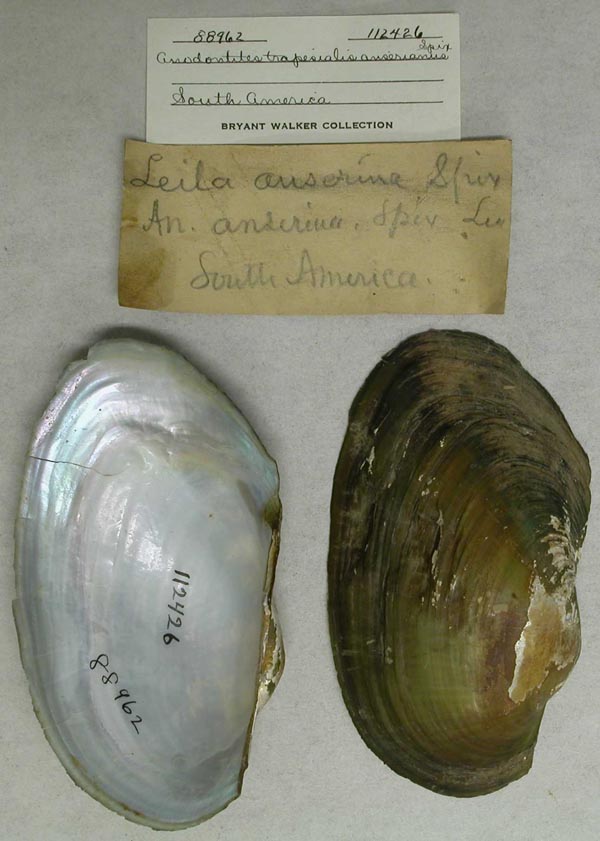 88962 112426
Anodontites trapesialis anserianus Spix
South America
BRYANT WALKER COLLECTION
Leila anserina Spix
An. anserina. Spix Lea
South America.
112426
88962